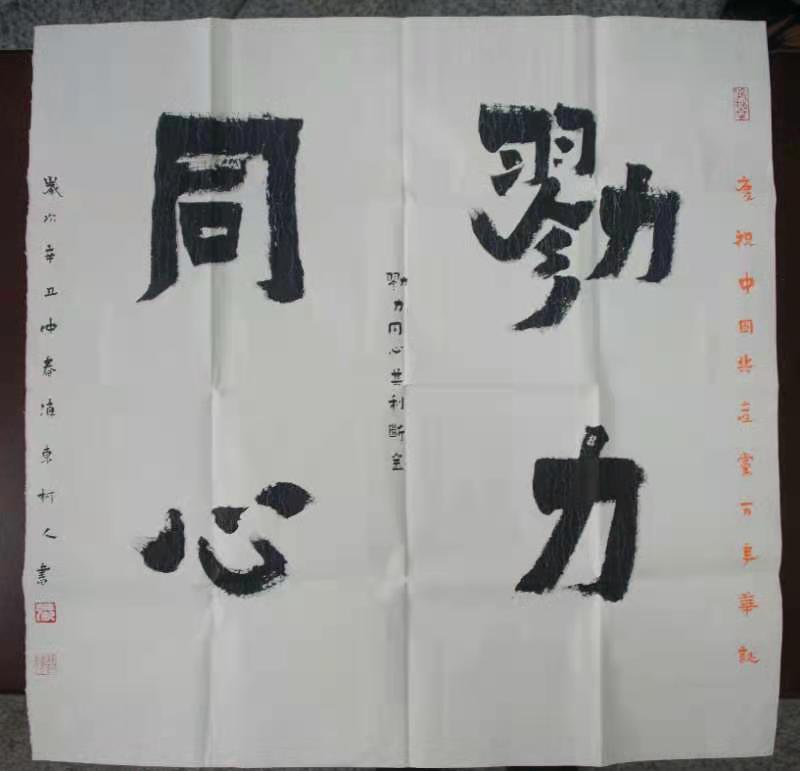 庆祝中国共产党百年华诞
勠力
同心
勠力同心其利断金
岁次辛丑仲春浦东柯人书